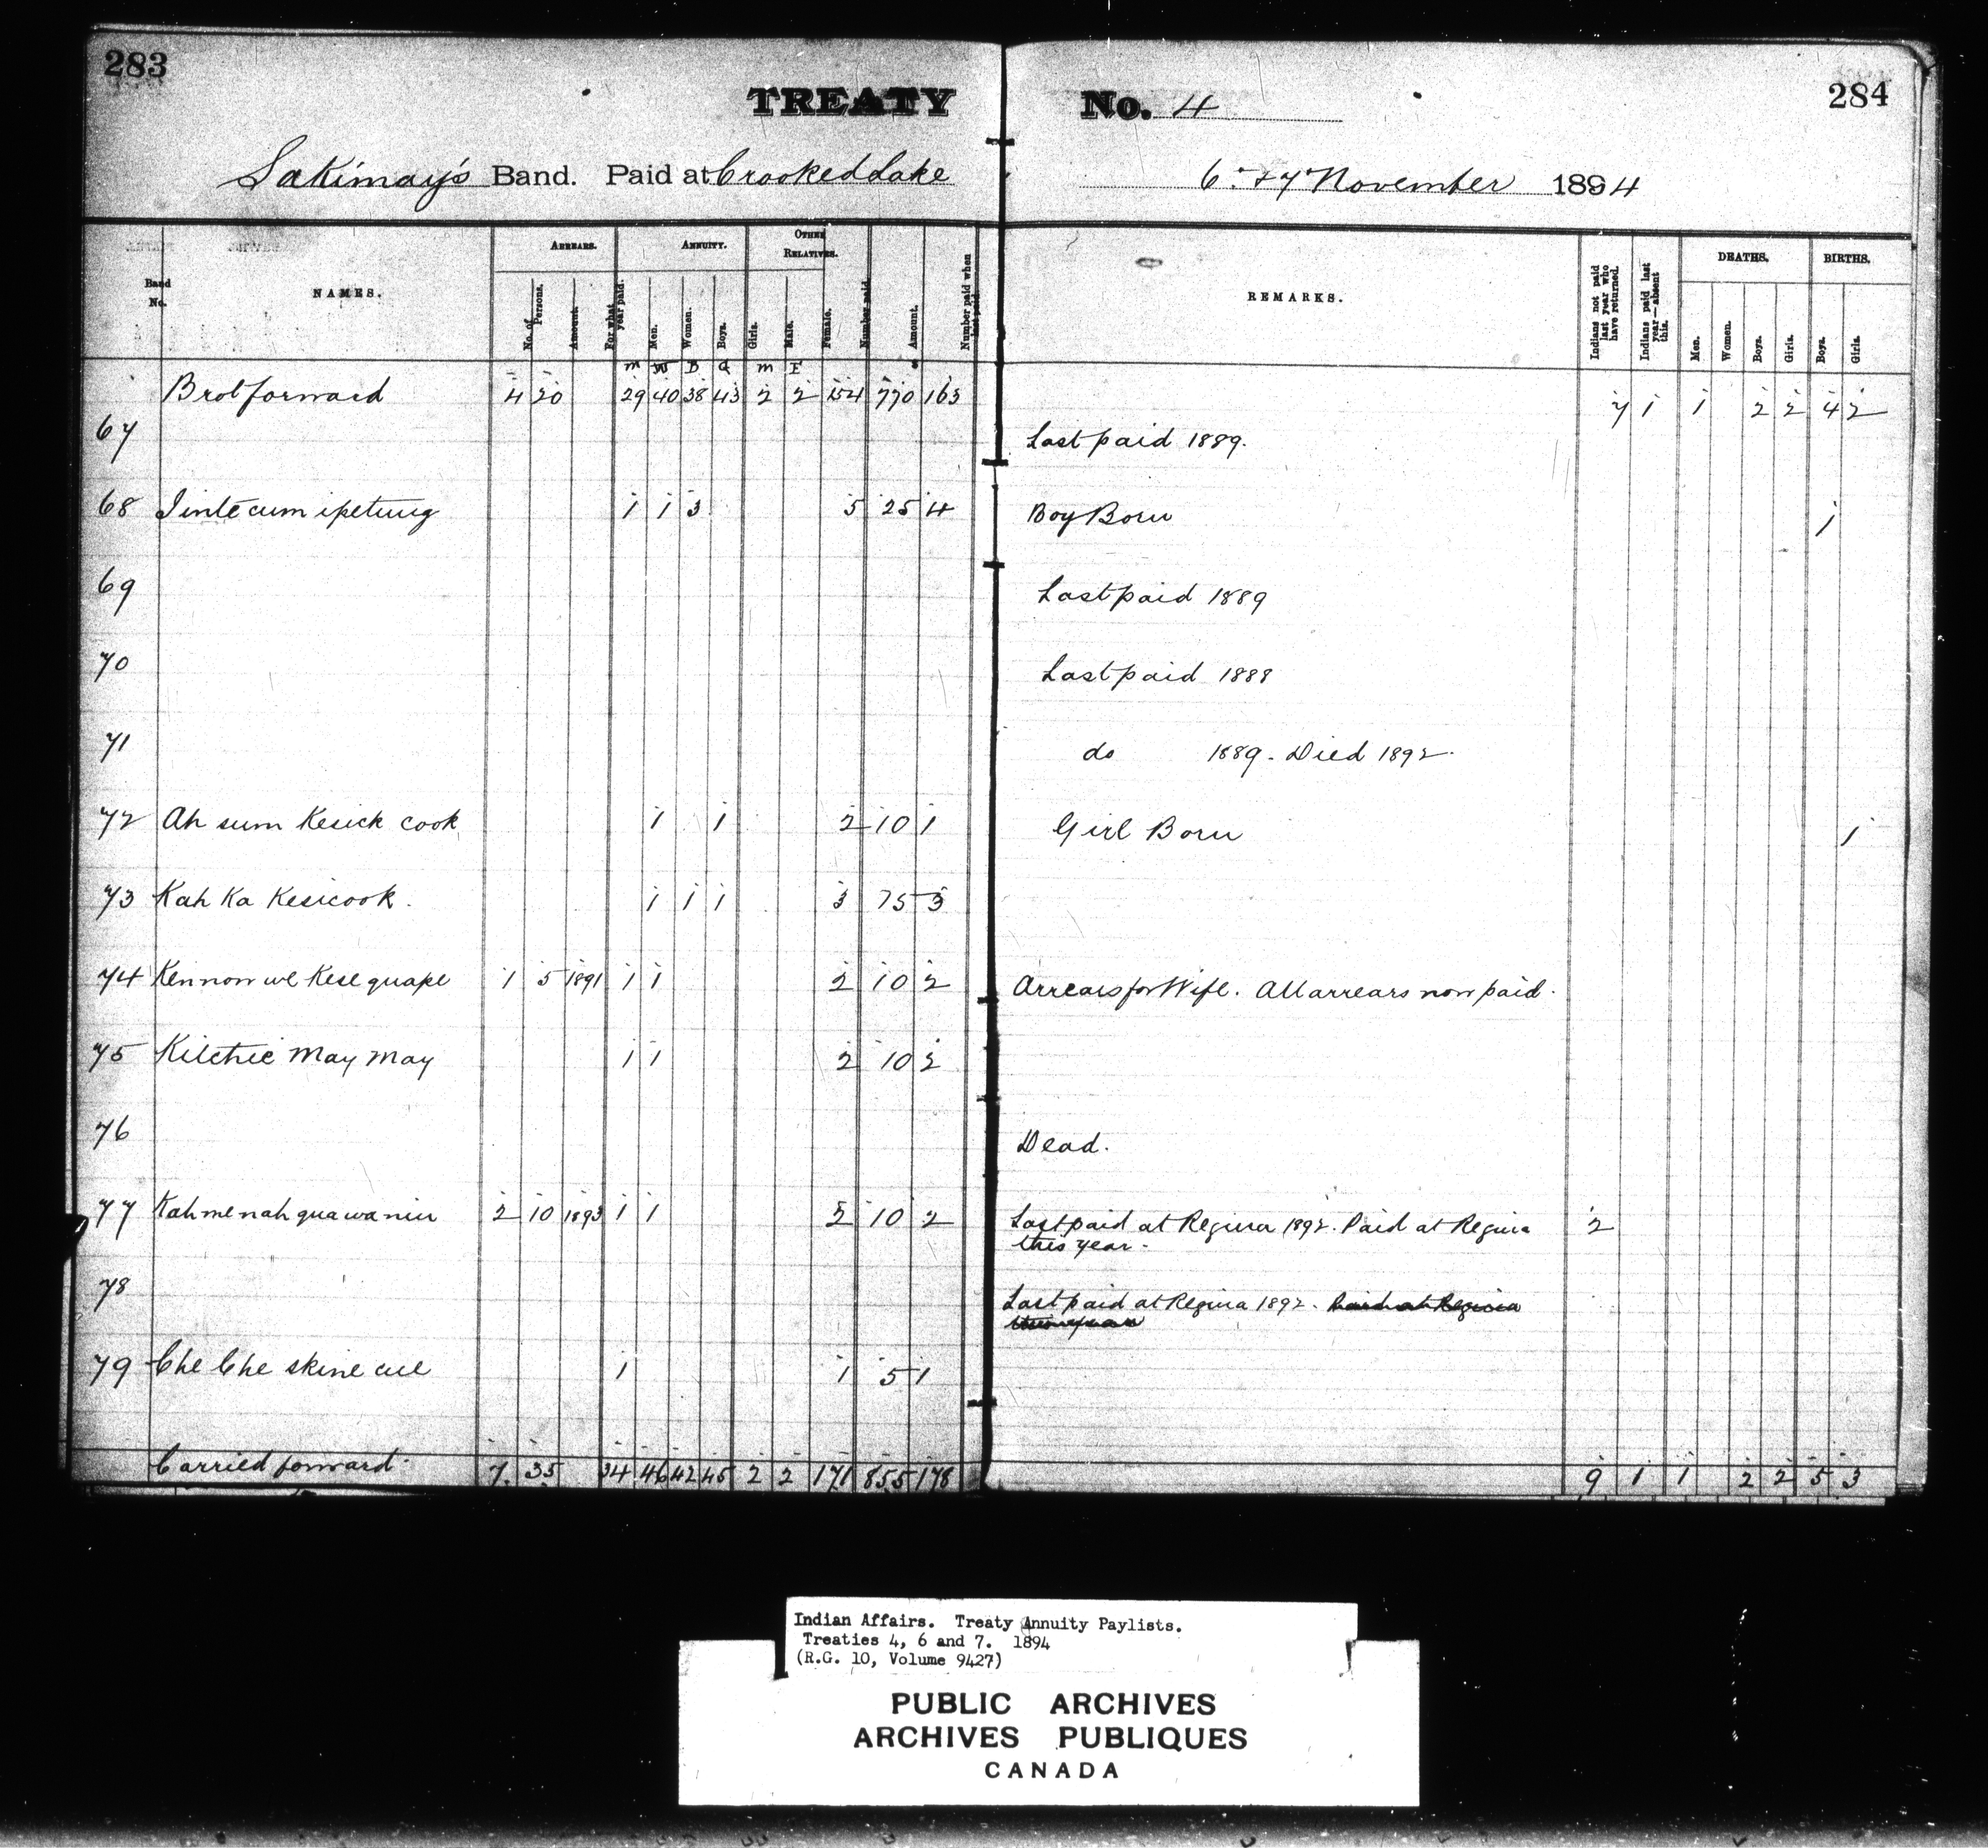 283
284
TREATY No. 4
Sakimay's Band. Paid at Crooked Lake 6. & 7 November 1894
Band No.
NAMES.
ARREARS.
No. of Persons.
Amount.
For what year paid.
ANNUITY.
Men.
Women.
Boys.
Girls.
OTHER RELATIVES.
Male.
Female.
Number paid.
Amount.
Number paid when last paid.
REMARKS.
Indians not paid last year who have returned.
Indians paid last year—absent this.
DEATHS.
Men.
Women.
Boys.
Girls.
BIRTHS.
Boys.
Girls.
m W B G m F
Brot forward 4 20 29 40 38 43 2 2 154 770 163 7 1 1 2 2 4 2
67 Last paid 1889.
68 Jinte cum ipetung 1 1 3 5 25 4 Boy Born 1
69 Last paid 1889
70 Last paid 1888
71 do 1889 - Died 1892
72 Ah sum Kesick cook 1 1 2 10 1 Girl Born 1
73 Kah Ka Kesicook. 1 1 1 3 15 3
74 Kennow we Kese quape 1 5 1891 1 1 2 10 2 Arrears for Wife. All arrears now paid.
75 Kitchie May May 1 1 2 10 2
76 Dead.
77 Kah me nah qua wa nin 2 10 1893 1 1 2 10 2 Last paid at Regina 1892. Paid at Regina 2
this year -
78 Last paid at Regina 1892. Paid at Regina
this year
79 Che Che skine cue 1 1 5 1
Carried forward 7. 35 34 46 42 45 2 2 171 855 178 9 1 1 2 2 5 3
Indian Affairs. Treaty Annuity Paylists.
Treaties 4, 6 and 7. 1894
(R.G. 10, Volume 9427)
PUBLIC ARCHIVES
ARCHIVES PUBLIQUES
CANADA